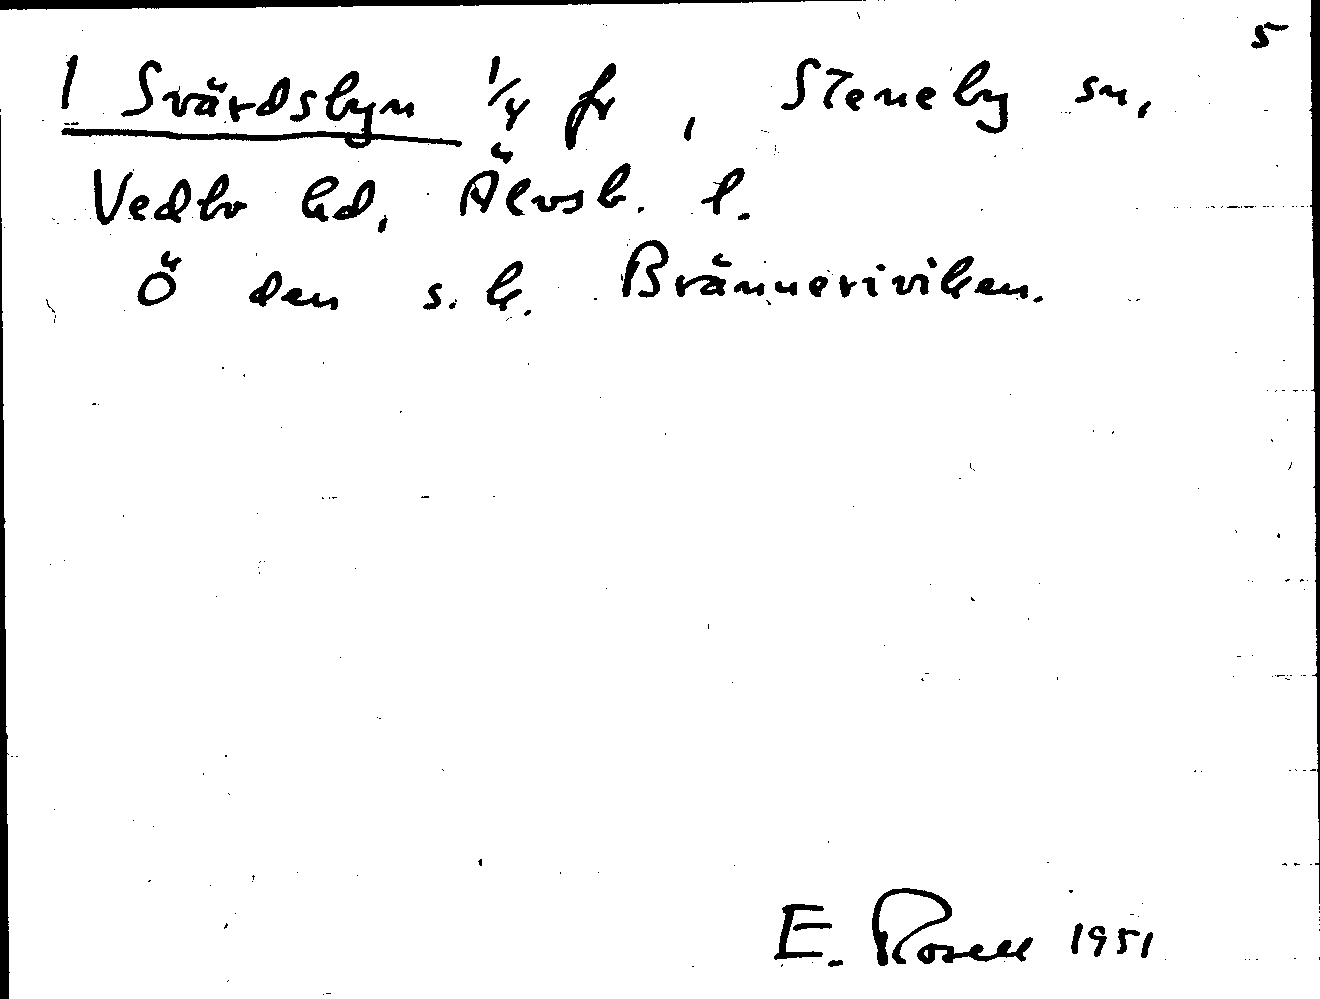 5
1 Svärdsbyn 1/4 fr, Steneby sn,
Vedbo hd, Älvsb. l.
Ö den s. k. Bränneriviken.
E. Rosell 1951